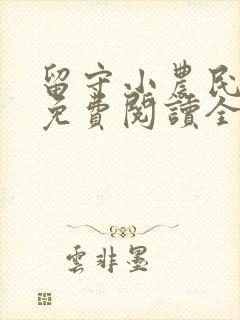 留守小農民
免費閱讀全
雲非墨